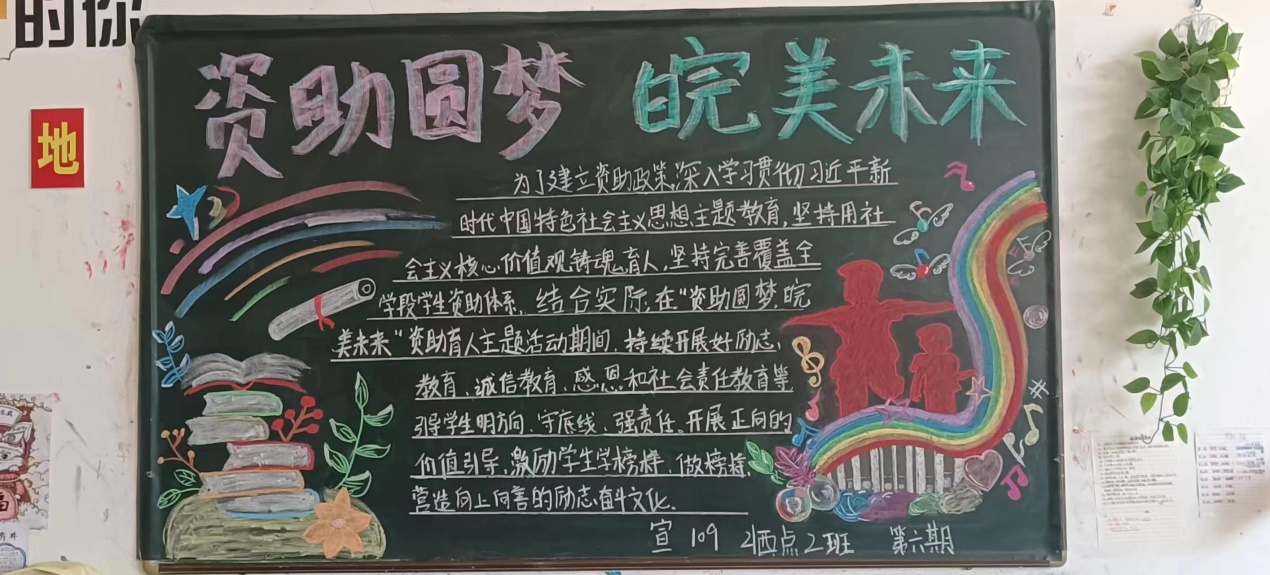 的你
地
资助圆梦 皖美未来
为了建立资助政策,深入学习贯彻习近平新
时代中国特色社会主义思想主题教育,坚持用社
会主义核心价值观铸魂育人,坚持完善覆盖全
学段学生资助体系,结合实际,在“资助圆梦,皖
美未来”资助育人主题活动期间,持续开展好励志、
教育、诚信教育、感恩和社会责任教育等
引导学生明方向、守底线、强责任、开展正向的
价值引导,激励学生学榜样,做榜样,
营造向上向善的励志奋斗文化.
宣 109 2西点2班 第六期